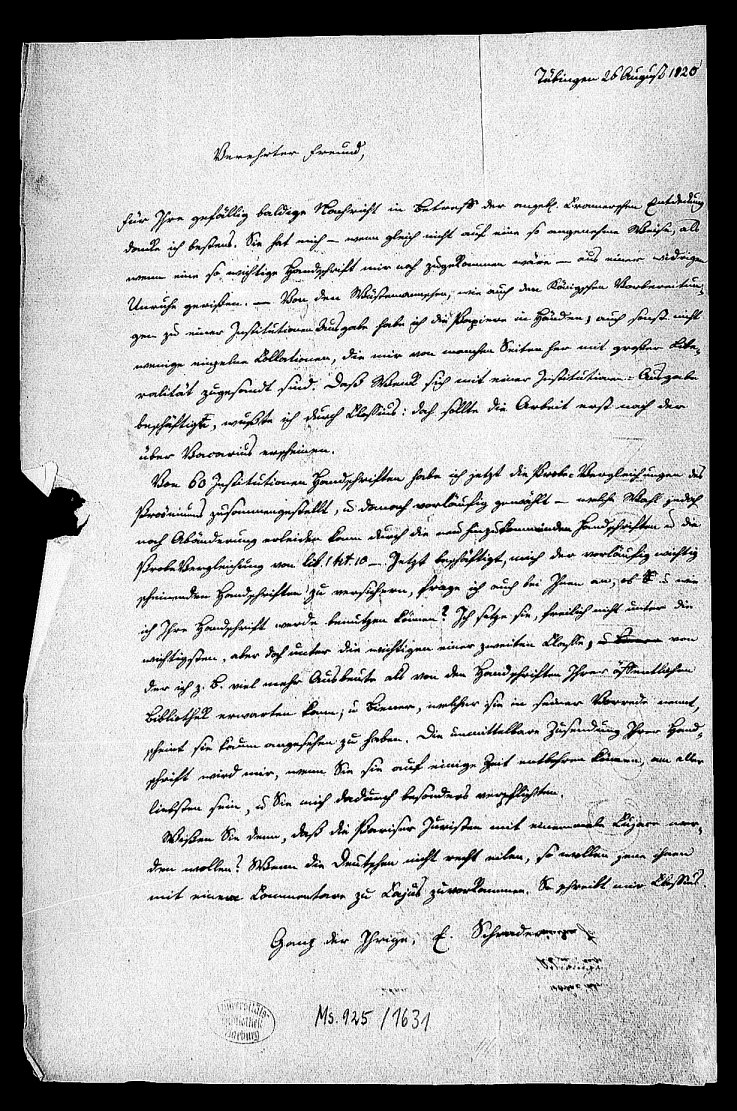 Tübingen 26 August 1820
Verehrter Freund,
Für Ihre gefällig baldige Nachricht in Betreff der angebl. Cramerschen Entdeckung
danke ich bestens. Sie hat mich – wenn gleich nicht auf eine so angenehme Weise, als
wenn eine so wichtige Handschrift mir noch zugekommen wäre – aus einer widrigen
Unruhe gerissen. – Von den Wüstemannschen, wie auch den Königschen Vorbereitun-
gen zu einer Institutionen Ausgabe habe ich die Papiere in Händen, auch sonst nicht
wenige einzelne Collationen, die mir von manchen Seiten her mit großer Libe-
ralität zugesandt sind. Daß Wenck sich mit einer Institutionen-Ausgabe
beschäftigt, wußte ich durch Clossius: doch sollte die Arbeit erst nach der
über Vacarius erscheinen.
Von 60 Institutionen Handschriften habe ich jetzt die Probe-Vergleichungen des
Proömiums zusammengestellt, u danach vorläufig gewählt – welche Wahl jedoch
noch Abänderung erleiden kann durch die neu hinzukommenden Handschriften u die
Probe Vergleichung von lib. 1 tit. 10 – Jetzt beschäftigt, mich der vorläufig wichtig
scheinenden Handschriften zu versichern, frage ich auch bei Ihnen an, ob u wie
ich Ihre Handschrift werde benutzen können? Ich setze sie, freilich nicht unter die
wichtigsten, aber doch unter die wichtigen einer zweiten Classe, von
der ich z. B. viel mehr Ausbeute als von den Handschriften Ihrer öffentlichen
Bibliothek erwarten kann; u Biener, welcher sie in seiner Vorrede nennt,
scheint sie kaum angesehen zu haben. Die unmittelbare Zusendung Ihrer Hand-
schrift wird mir, wenn Sie sie auf einige Zeit entbehren können, am aller
liebsten sein, u Sie mich dadurch besonders verpflichten.
Wissen Sie denn, daß die Pariser Juristen mit einemmale Cujace wer-
den wollen? Wenn die Deutschen nicht recht eilen, so wollen jene ihnen
mit einem Commentare zu Cajus zuvorkommen. So schreibt mir Clossius.
Ganz der Ihrige, E. Schrader
Universitäts-
Bibliothek
Marburg
Ms. 925/1631